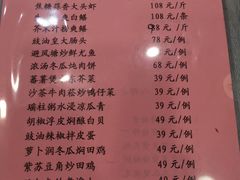 焦糖蒜香大头虾 108元/斤
108元/条
芥末汁 88元/斤
豉油皇大肠头 78元/例
避风塘炒鲜尤鱼 68元/例
浓汤冬瓜炖肉饼 68元/例
蕃薯煲 芥菜 39元/例
沙茶牛肉菘炒鸭仔菜 39元/例
瑞柱粥水浸凉瓜青 39元/例
胡椒浮皮焖酿白贝 49元/例
豉油辣椒拌皮蛋 39元/例
萝卜润冬瓜焖田鸡 49元/例
紫苏豆角炒田鸡 49元/例